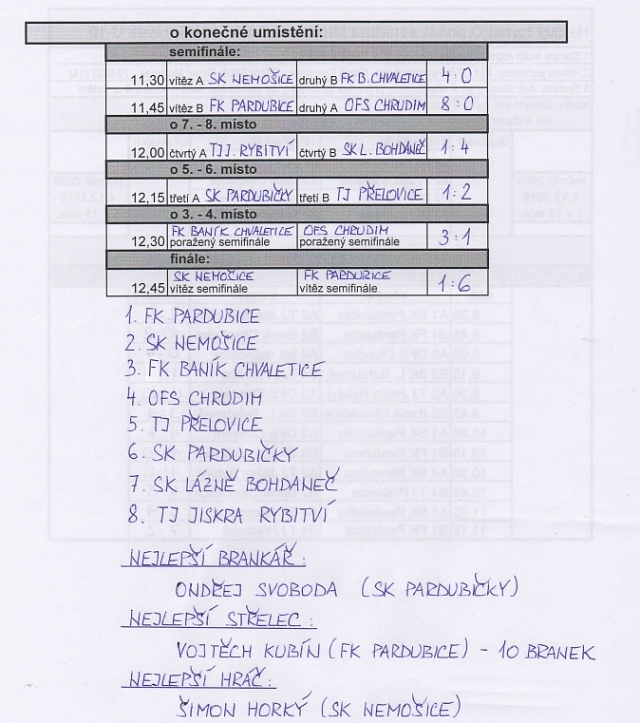 o konečné umístění:
semifinále:
11,30 vítěz A SK NEMOŠICE druhý B FK B. CHVALETICE 4:0
11,45 vítěz B FK PARDUBICE druhý A OFS CHRUDIM 8:0
o 7. - 8. místo
12,00 čtvrtý A TJ J. RYBITVÍ čtvrtý B SK L. BOHDANEČ 1:4
o 5. - 6. místo
12,15 třetí A SK PARDUBIČKY třetí B TJ PŘELOVICE 1:2
o 3. - 4. místo
FK BANÍK CHVALETICE OFS CHRUDIM
12,30 poražený semifinále poražený semifinále 3:1
finále:
SK NEMOŠICE FK PARDUBICE
12,45 vítěz semifinále vítěz semifinále 1:6
1. FK PARDUBICE
2. SK NEMOŠICE
3. FK BANÍK CHVALETICE
4. OFS CHRUDIM
5. TJ PŘELOVICE
6. SK PARDUBIČKY
7. SK LÁZNĚ BOHDANEČ
8. TJ JISKRA RYBITVÍ
NEJLEPŠÍ BRANKÁŘ:
ONDŘEJ SVOBODA (SK PARDUBIČKY)
NEJLEPŠÍ STŘELEC:
VOJTĚCH KUBÍN (FK PARDUBICE) - 10 BRANEK
NEJLEPŠÍ HRÁČ:
ŠIMON HORKÝ (SK NEMOŠICE)